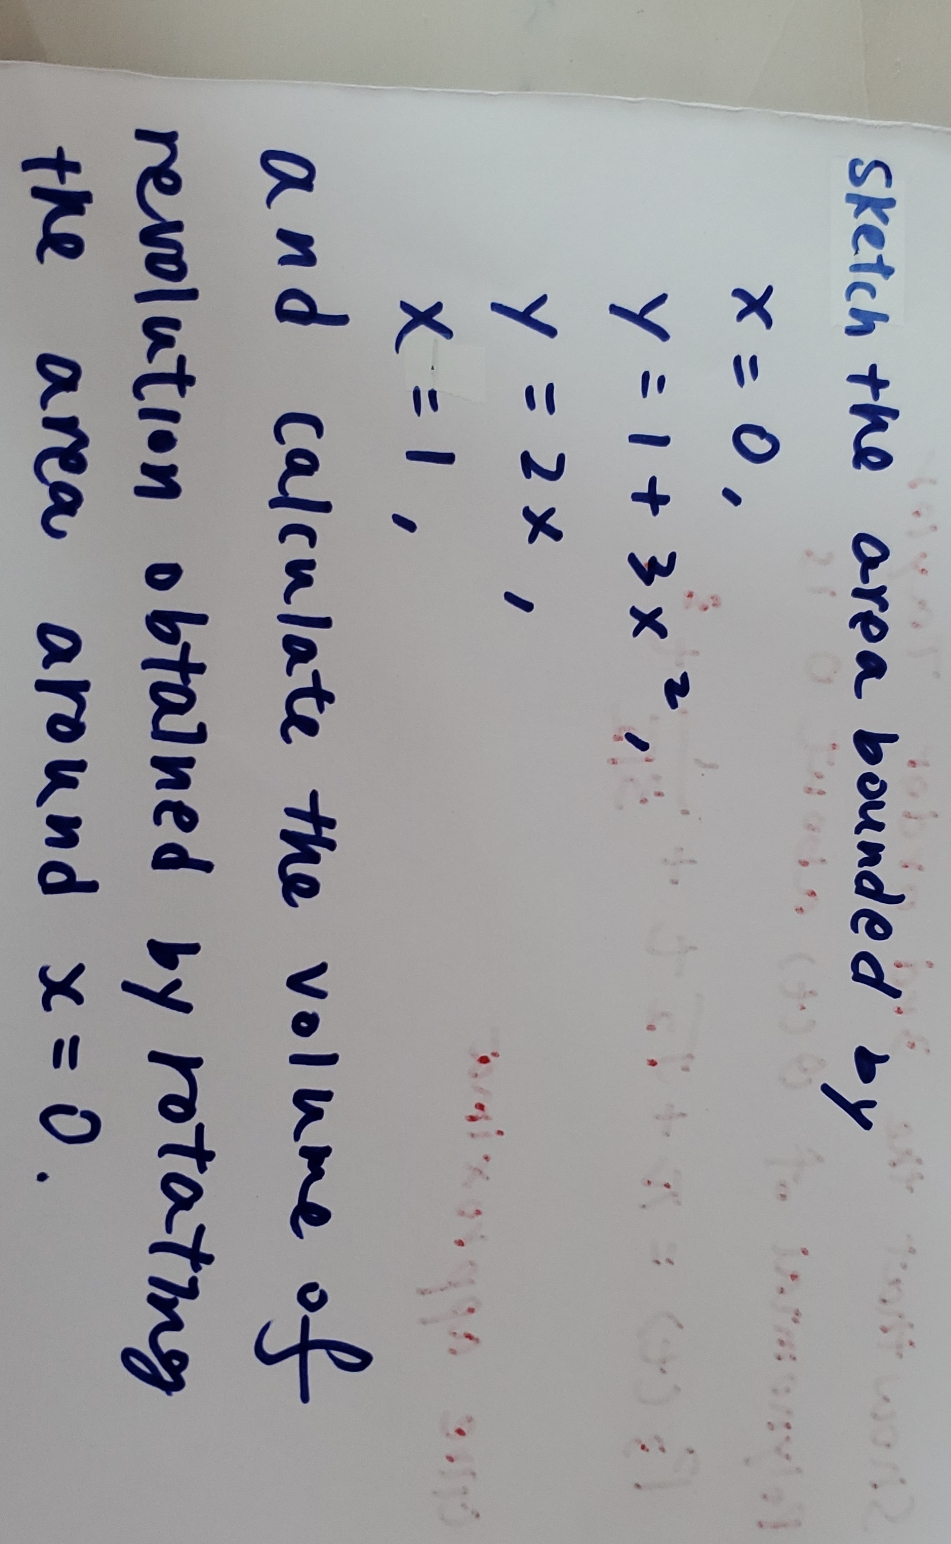 sketch the area bounded by
x = 0,
y = 1 + 3x²,
y = 2x,
x = 1,
and calculate the volume of
revolution obtained by rotating
the area around x = 0.